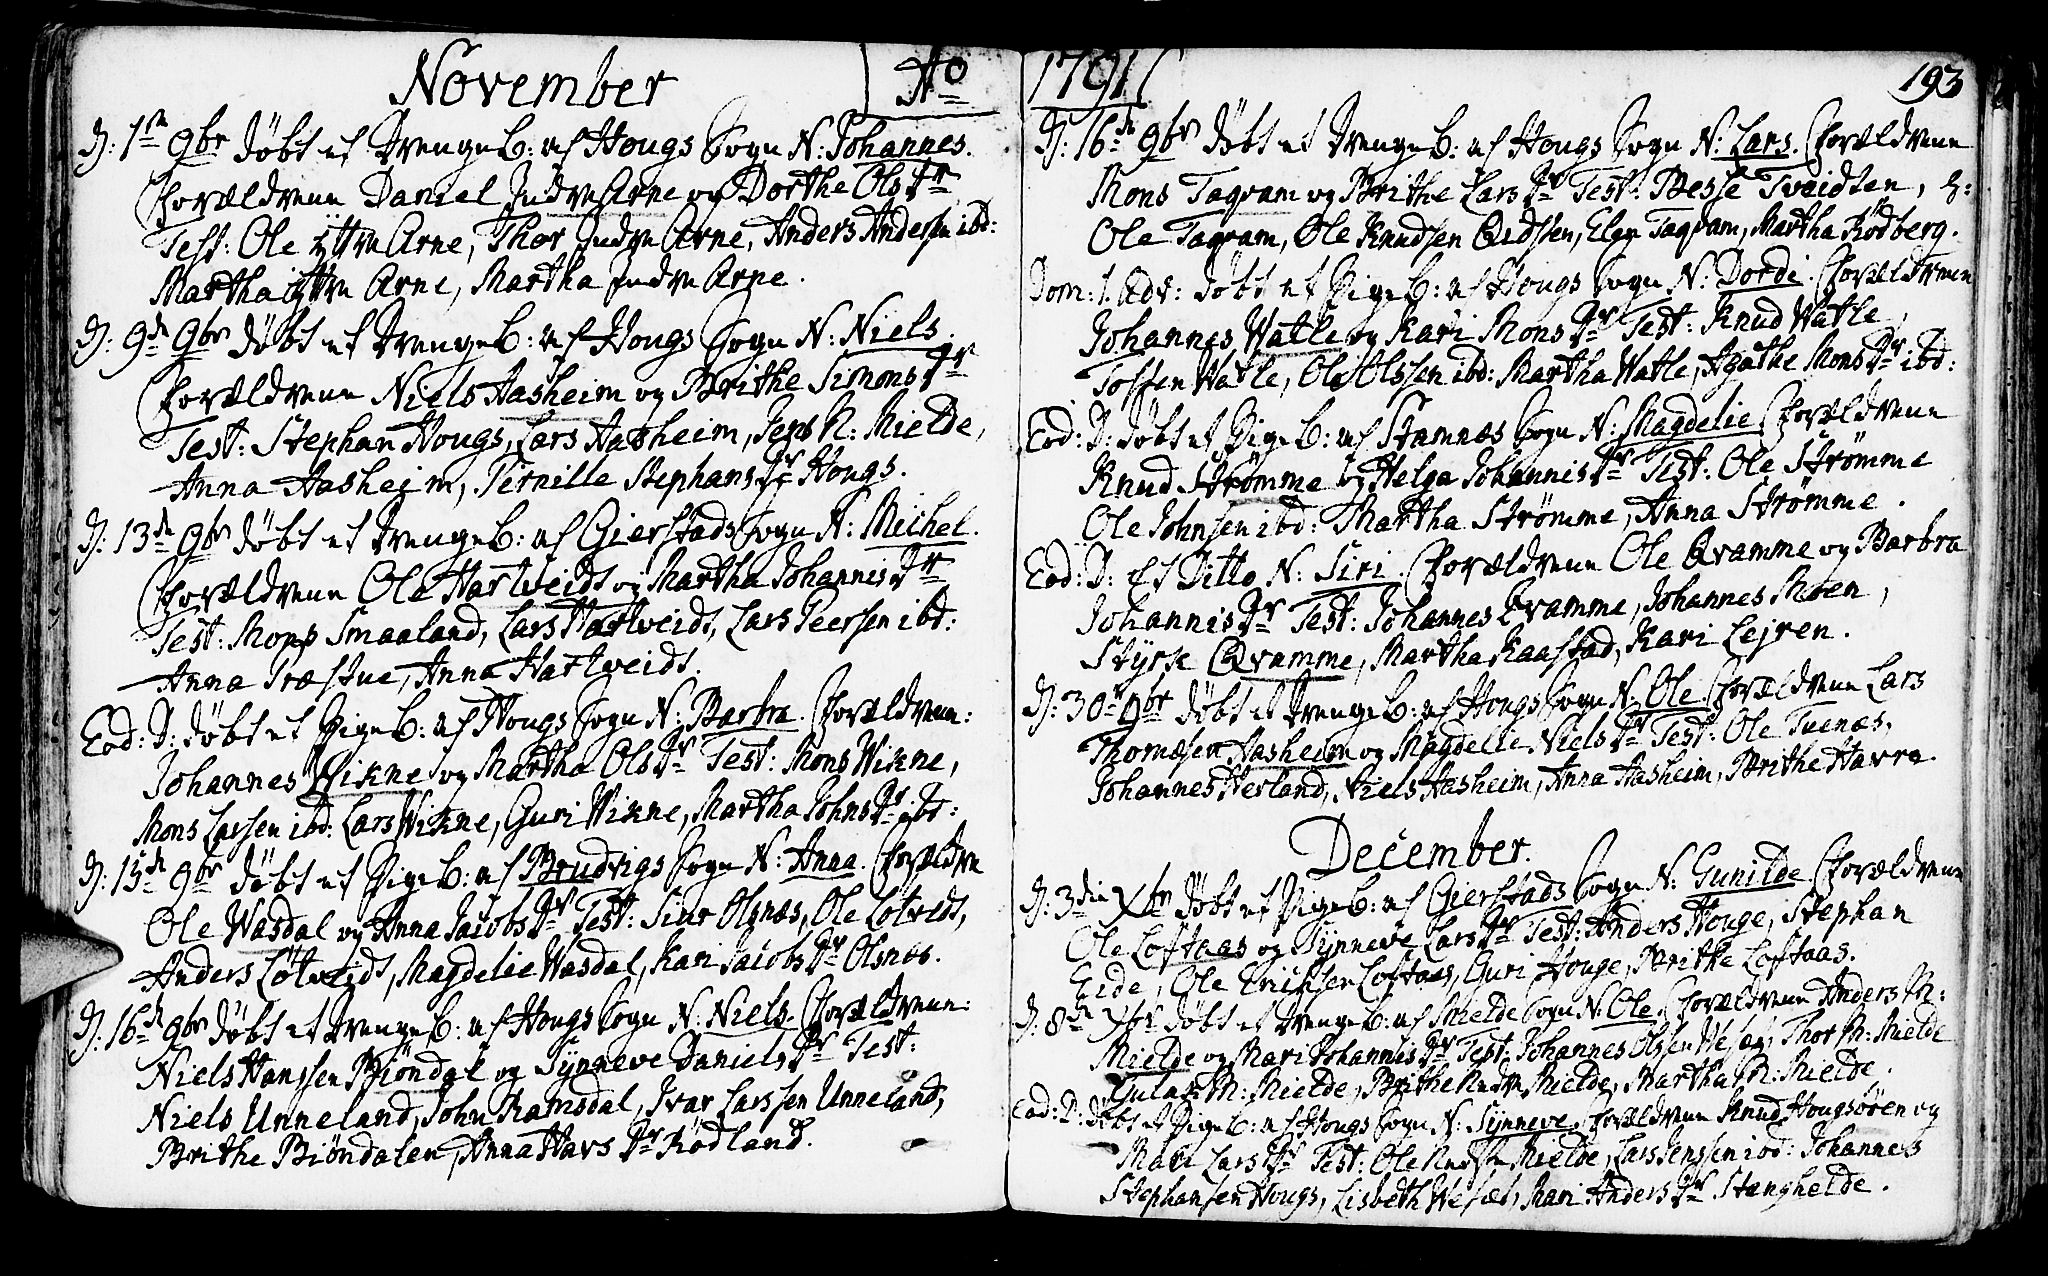 November Ao
D: 1ste 9br døbt et DrengeB: af Hougs Sogn N: Johannes.
Forældrene Daniel Indre Arne og Dorthe Ols Dr
Test: Ole yttre Arne, Thor Indre Arne, Anders Andersen ibd:
Martha yttre Arne, Martha Indre Arne.
D: 9de 9br døbt et DrengeB: af Hougs Sogn N: Niels.
Forældrene Niels Aasheim og Brithe Simons Dr
Test: Stephan Hougs, Lars Aasheim, Jens N: Mielde,
Anna Aasheim, Pernille Stephans Dr Hougs.
D: 13de 9br døbt et DrengeB: af Gierstads Sogn N: Michel.
Forældrene Ole Hartveidt og Martha Johannis Dr
Test: Mons Smaaland, Lars Hartveidt, Lars Peersen ibd:
Anna Træstue, Anna Hartveidt.
Eod: D: døbt et PigeB: af Hougs Sogn N: Barbra. Forældrene:
Johannes Wikne og Martha Ols Dr Test: Mons Wikne,
Mons Larsen ibd: Lars Wikne, Guri Wikne, Martha Johns Dr ibd:
D: 15de 9br døbt et PigeB: af Brudvigs Sogn N: Anna. Forældre
Ole Wasdal og Anna Jacobs Dr Test: Siur Olsnæs, Ole Lotveidt,
Anders Lotveidt, Magdelie Wasdal, Kari Jacobs Dr Olsnæs.
D: 16de 9br døbt et DrengeB: af Hougs Sogn N: Niels. Forældrene:
Niels Hanssen Biöndal og Synneve Daniels Dr Test:
Niels Unneland, John Ramsdal, Ivar Larssen Unneland,
Brithe Biöndalen, Anna Havs Dr Rödland.
1791 193
D: 16de 9br døbt et DrengeB: af Hougs Sogn N: Lars. Forældrene
Mons Tagvam og Brithe Lars Dr Test: Besse Tveidten,
Ole Tagvam, Ole Knudsen Eidssen, Elen Tagvam, Martha Rödberg.
Dom: 1. Adv: døbt et PigeB: af Hougs Sogn N: Dordi. Forældrene
Johannes Watle og Kari Mons Dr Test: Knud Watle,
Tosten Watle, Ole Olssen ibd: Martha Watle, Agathe Mons Dr ibd:
Eod: D: døbt et PigeB: af Stamnæs Sogn N: Magdelie. Forældrene
Knud Strömme og Helga Johannis Dr Test: Ole Strömme
Ole Johnsen ibd: Martha Strömme, Anna Strömme.
Eod: D: et Ditto N: Siri. Forældrene Ole Qvamme og Barbra
Johannis Dr Test: Johannes Qvamme, Johannes Moen,
Styrk Qvamme, Martha Kaastad, Kari Lejren.
D: 30te 9br døbt et DrengeB: af Hougs Sogn N: Ole. Forældrene Lars
Thomæsen Aasheim og Magdelie Niels Dr Test: Ole Tuenæs,
Johannes Herland, Niels Aasheim, Anna Aasheim, Brithe Havre.
December.
D: 3die Xbr døbt et PigeB: af Gierstads Sogn N: Gunilde Forældrene
Ole Loftaas og Synneve Lars Dr Test: Anders Houge, Stephan
Eide, Ole Erichsen Loftaas, Guri Houge, Brithe Loftaas.
D: 8de Xbr døbt et DrengeB: af Mielde Sogn N: Ole. Forældrene Anders M:
Mielde og Mari Johannis Dr Test: Johannes Olssen Wesæt, Thor M: Mielde
Gulak M: Mielde, Brithe Nedre Mielde, Martha M: Mielde.
Eod: D: døbt et PigeB: af Hougs Sogn N: Synneve. Forældrene Knud Hougsören og
Mari Lars Dr Test: Ole Nedre Mielde, Lars Jenssen ibd: Johannes
Stephansen Hougs, Lisbeth Wesæt, Mari Anders Dr Stanghelde.